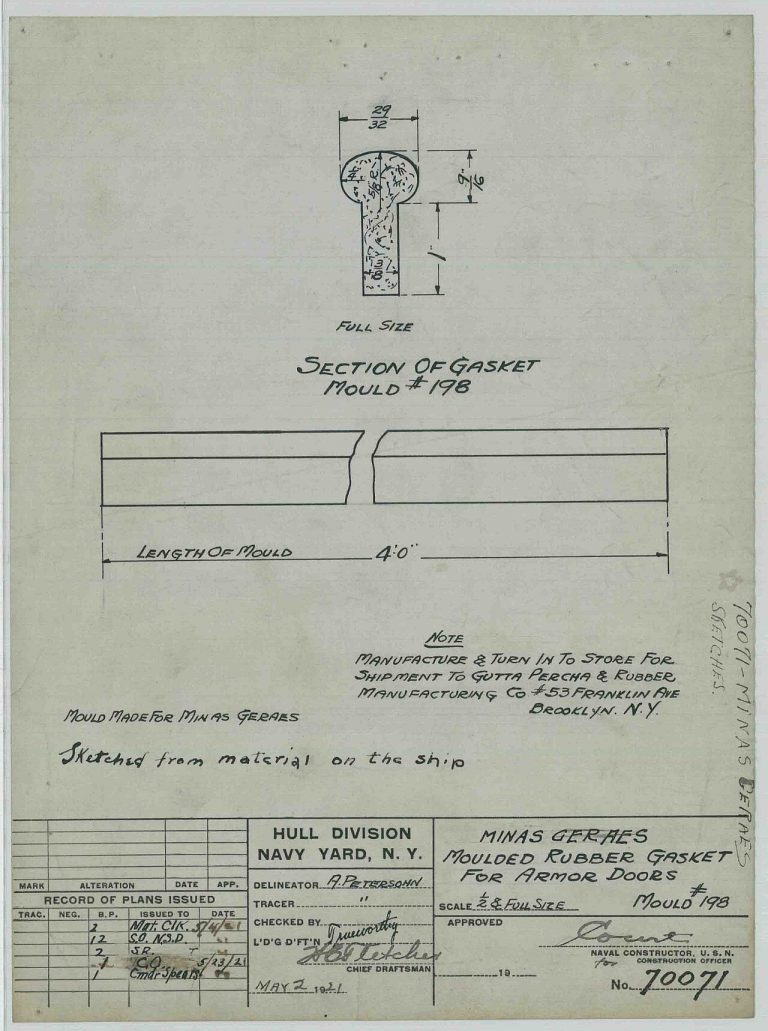 29
32
5/8 R.
9
16
1"
3
8
FULL SIZE
SECTION OF GASKET
MOULD # 198
LENGTH OF MOULD 4'.0"
NOTE
MANUFACTURE & TURN IN TO STORE FOR
SHIPMENT TO GUTTA PERCHA & RUBBER
MANUFACTURING CO #53 FRANKLIN AVE
BROOKLYN. N.Y.
MOULD MADE FOR MINAS GERAES
Sketched from material on the ship
70071-MINAS GERAES
SKETCHES.
MARK ALTERATION DATE APP.
RECORD OF PLANS ISSUED
TRAC. NEG. B.P. ISSUED TO DATE
2 Mat. Clk. 5/4/21
12 S.O. N.S.D "
2 SR. T "
1 C.O. 5/23/21
1 Cmdr Spears "
HULL DIVISION
NAVY YARD, N. Y.
DELINEATOR A. PETERSOHN
TRACER "
CHECKED BY Trueworthy
L'D'G D'FT'N
Fletcher
CHIEF DRAFTSMAN
MAY 2 1921
MINAS GERAES
MOULDED RUBBER GASKET
FOR ARMOR DOORS
SCALE 1/2 & FULL SIZE MOULD # 198
APPROVED
NAVAL CONSTRUCTOR, U. S. N.
for CONSTRUCTION OFFICER
19
No. 70071